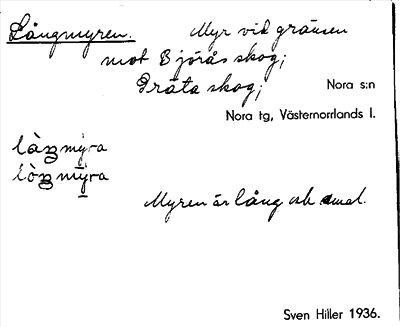 Långmyren. Myr vid gränsen
mot Björåsskog;
Präta skog; Nora s:n
Nora tg, Västernorrlands l.
Myren är lång och smal.
Sven Hiller 1936.